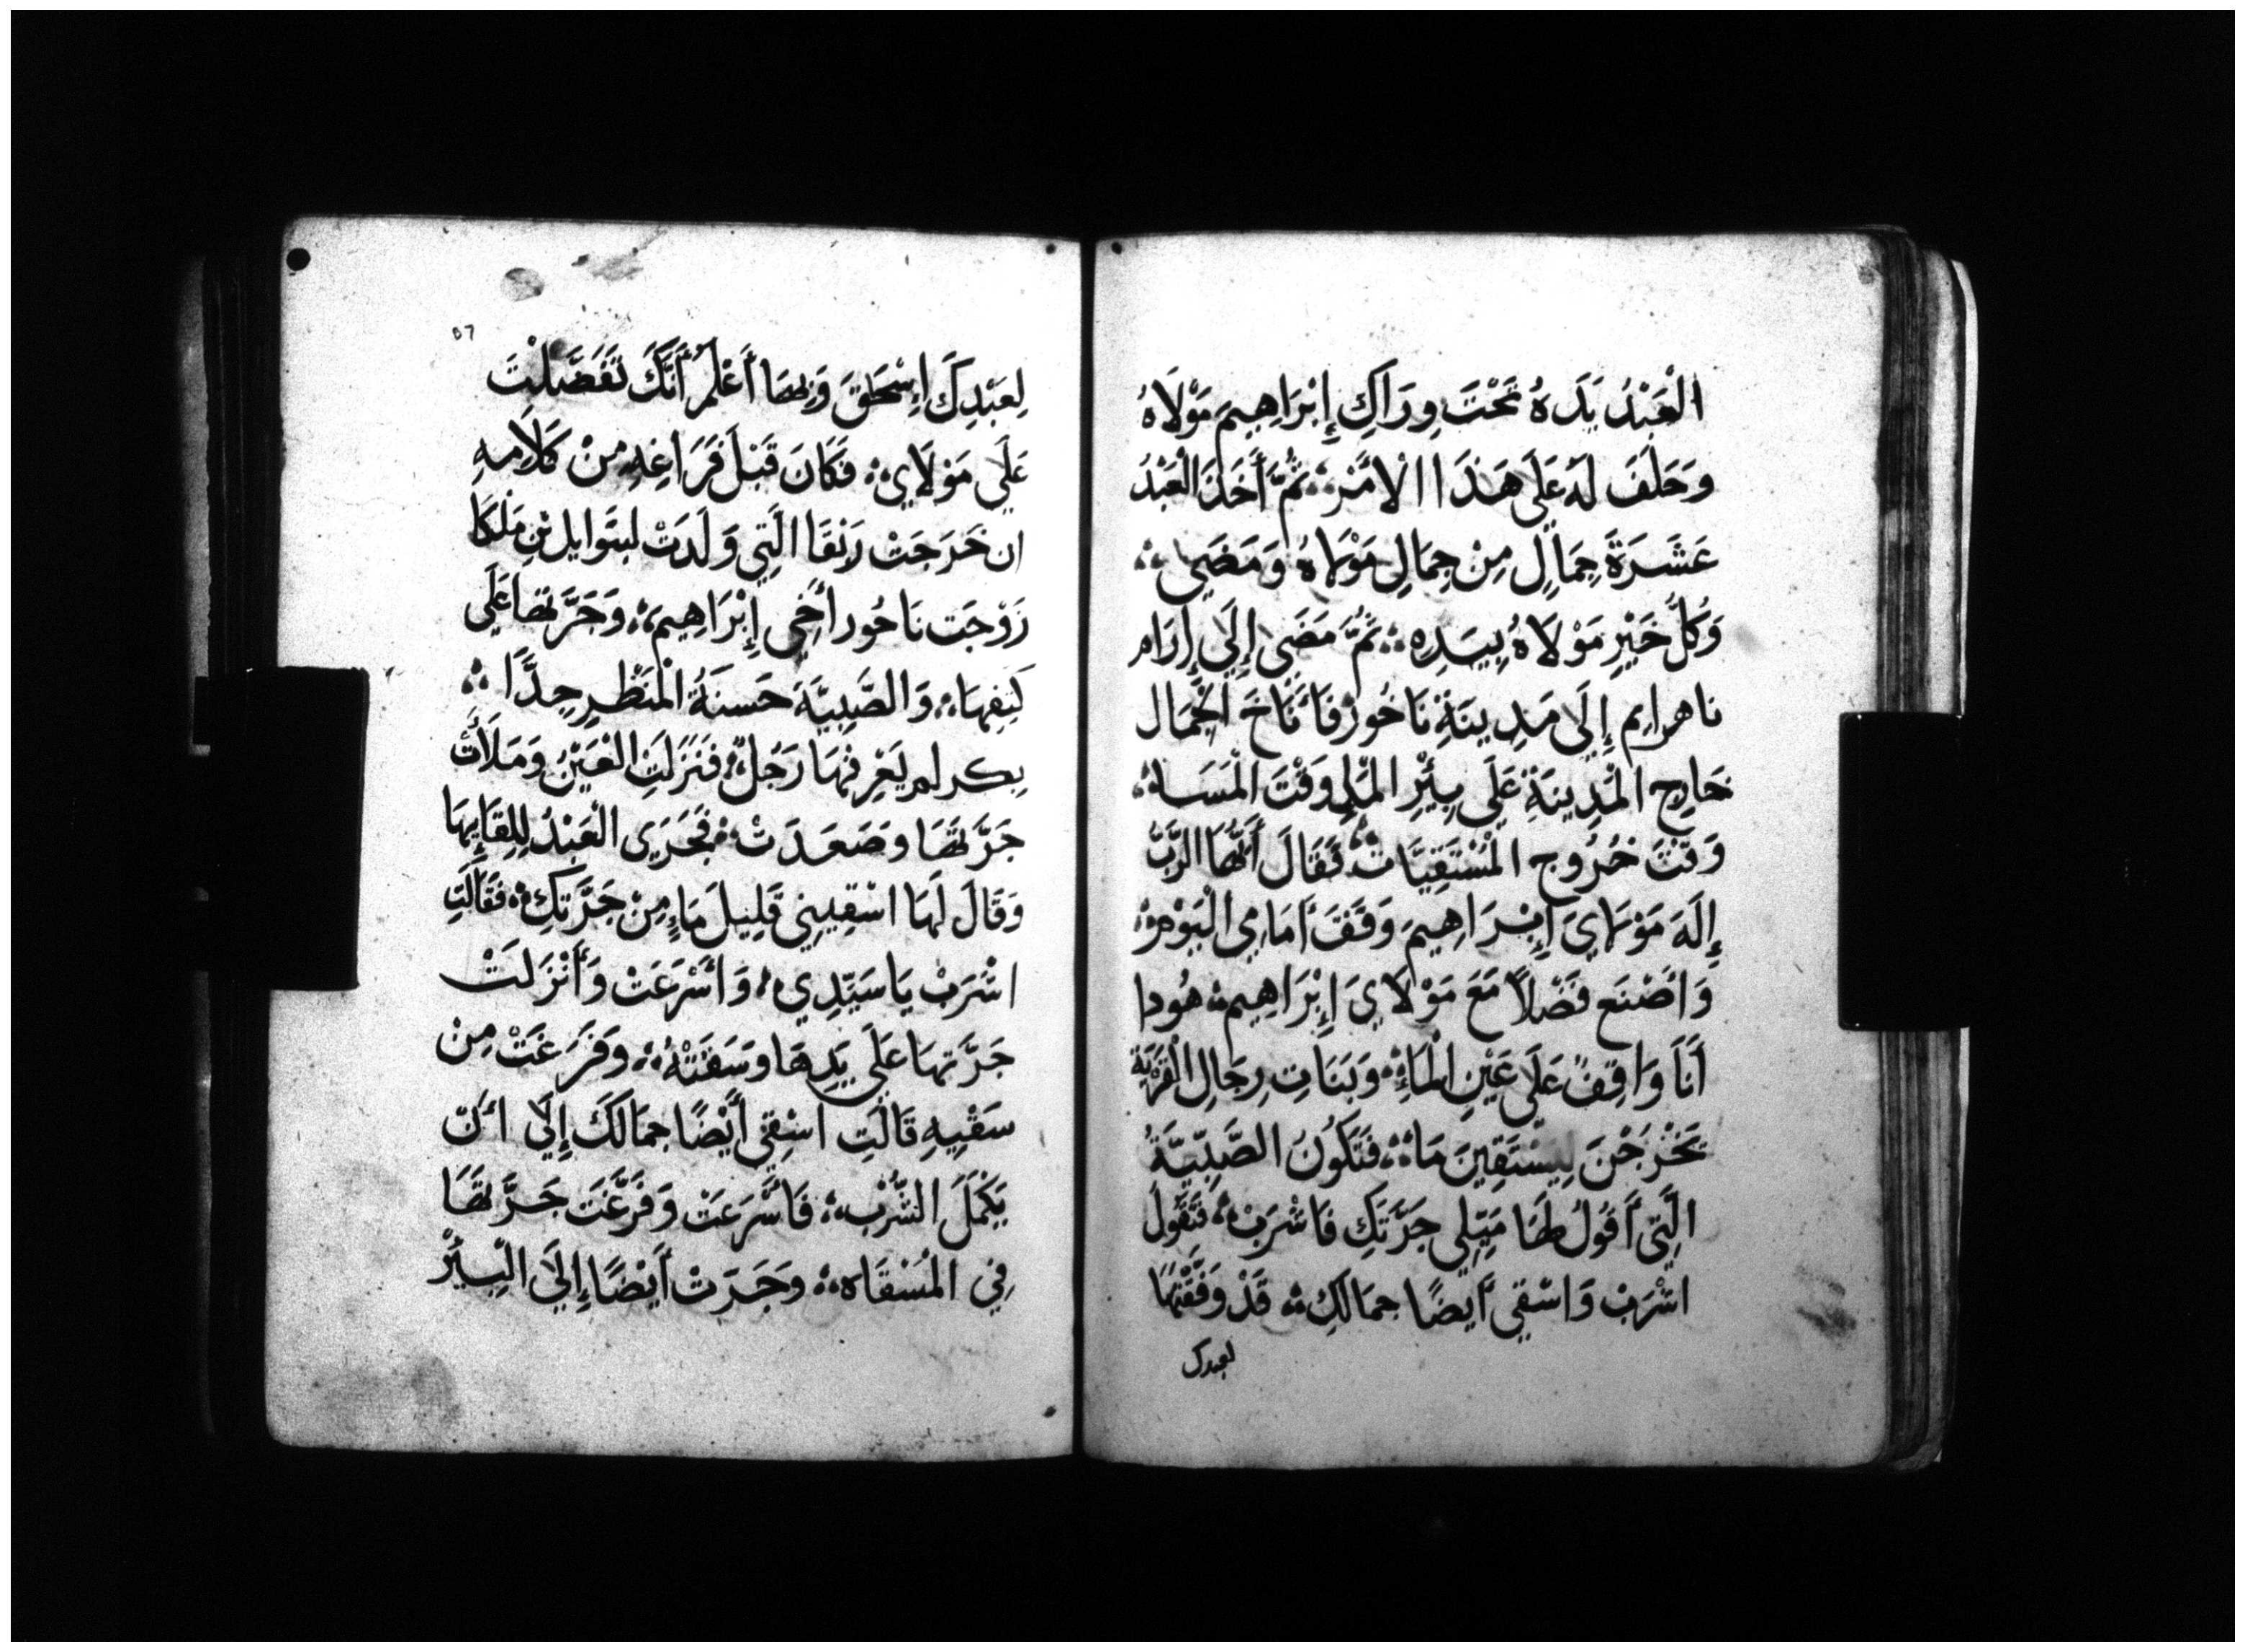 الْعَبْدُ يَدَهُ تَحْتَ وِرَاكِ إِبْرَاهِيمَ مَوْلَاهُ
وَحَلَفَ لَهُ عَلَى هَذَا الْأَمْرِ ثُمَّ أَخَذَ الْعَبْدُ
عَشَرَةَ جِمَالٍ مِنْ جِمَالِ مَوْلَاهُ وَمَضَى
وَكُلُّ خَيْرِ مَوْلَاهُ بِيَدِهِ ثُمَّ مَضَى إِلَى إِرَام
ناهرايم إِلَى مَدِينَةِ نَاحُورْ فَأَنَاخَ الْجِمَال
خَارِج الْمَدِينَةِ عَلَى بِئْرِ الْمَاءِ وَقْتَ الْمَسَاء
وَقْتَ خُرُوج الْمُسْتَقِيَات فَقَالَ أَيُّهَا الرَّبُّ
إِلَهَ مَوْلَايَ إِبْرَاهِيمَ وَقِفَ أَمَامِي الْيَوْم
وَأَصْنَع فَضْلًا مَعَ مَوْلَايَ إِبْرَاهِيم هُودا
أَنَا وَاقِفٌ عَلَى عَيْنِ الْمَاءِ وَبَنَاتِ رِجَالِ الْقَرْيَةِ
يَخْرُجْنَ لِيَسْتَقِينَ مَاءً فَتَكُونُ الصَّبِيَّةُ
الَّتِي أَقُولُ لَهَا مَيِّلِي جَرَّتَكِ فَاشْرَبْ فَتَقُولَ
اشْرَبْ وَاسْقِي أَيضًا جِمَالَكِ قَدْ وَفَّقْتَهَا
لعبدك
٥٦
لِعَبْدِكَ إِسْحَقَ وَبِهَا أَعْلَمُ أَنَّكَ تَفَضَّلْتَ
عَلَى مَوْلَايَ فَكَانَ قَبْلَ فَرَاغِهِ مِنْ كَلَامِهِ
ان خَرَجَتْ رَبْقَا الَّتِي وَلَدَتْ لبتَوايل بْنِ مَلْكَا
زَوْجَت نَاحُور أَخِي إِبْرَاهِيمَ وَجَرَّتهَا عَلَى
كَتِفِهَا وَالصَّبِيَّةَ حَسَنَةُ الْمَنْظَرِ جِدًّا
بِكر لم يَعْرِفْهَا رَجُلٌ فَنَزَلَتِ الْعَيْنُ وَمَلَأَتْ
جَرَّتَهَا وَصَعَدَتْ فَجَرَى الْعَبْدُ لِلِقَائِهَا
وَقَالَ لَهَا اسْقِينِي قَلِيلَ مَاءٍ مِنْ جَرَّتِكِ فَقَالَتِ
اشْرَبْ يَا سَيِّدِي وَأَسْرَعَتْ وَأَنْزَلَتْ
جَرَّتهَا عَلَى يَدِهَا وَسَقَتْهُ وَفَرَغَتْ مِنْ
سَقْيِهِ قَالَتِ اسْقِي أَيْضًا جِمَالَكَ إِلَى أَنْ
يَكْمُلَ الشُّرْب فَأَسْرَعَتْ وَفَرَّغَتَ جَرَّتَهَا
فِي الْمُسْقَاه وَجَرَتْ أَيْضًا إِلَى الْبِيئْرْ